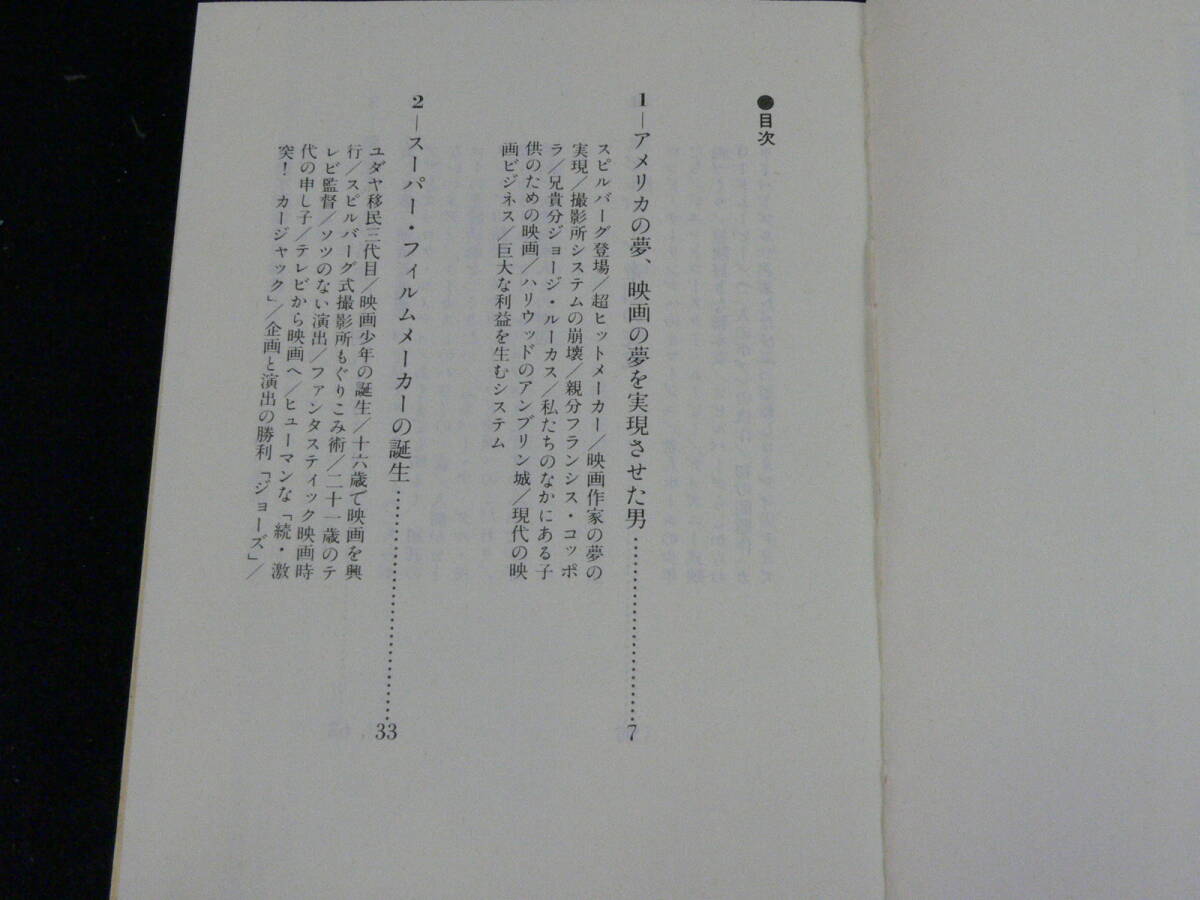 ●目次
1─アメリカの夢、映画の夢を実現させた男……………………7
スピルバーグ登場/超ヒットメーカー/映画作家の夢の
実現/撮影所システムの崩壊/親分フランシス・コッポ
ラ/兄貴分ジョージ・ルーカス/私たちのなかにある子
供のための映画/ハリウッドのアンブリン城/現代の映
画ビジネス/巨大な利益を生むシステム
2─スーパー・フィルムメーカーの誕生……………………………33
ユダヤ移民三代目/映画少年の誕生/十六歳で映画を興
行/スピルバーグ式撮影所もぐりこみ術/二十一歳のテ
レビ監督/ソツのない演出/ファンタスティック映画時
代の申し子/テレビから映画へ/ヒューマンな「続・激
突! カージャック」/企画と演出の勝利「ジョーズ」/